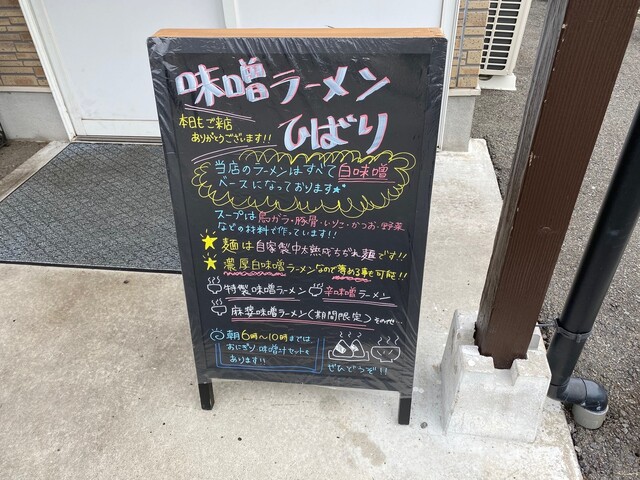 味噌ラーメン
ひばり
本日もご来店
ありがとうございます!!
当店のラーメンはすべて白味噌
ベースになっております★
スープは鳥ガラ・豚骨・いりこ・かつお・野菜
などの材料で作っています!!
★ 麺は自家製中太熟成ちぢれ麺です!!
★ 濃厚白味噌ラーメンなので薄める事も可能!!
特製味噌ラーメン 辛味噌ラーメン
麻婆味噌ラーメン(期間限定)その他…
朝6時〜10時までは
おにぎり味噌汁セットも
あります!!
ぜひどうぞ!!